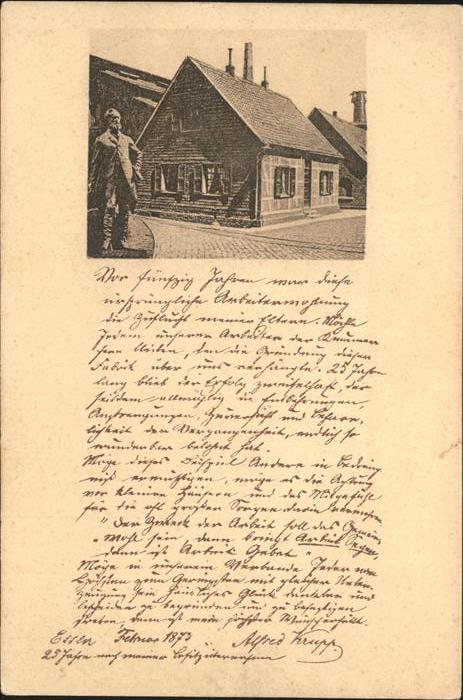 Vor fünfzig Jahren war diese
ursprüngliche Arbeiterwohnung
die Zuflucht meiner Eltern. Möchte
Jedem unserer Arbeiter der Kummer
fern bleiben, den die Gründung dieser
Fabrik über uns verhängte. 25 Jahre
lang blieb der Erfolg zweifelhaft, der
seitdem allmählig die Entbehrungen,
Anstrengungen, Zuversicht und Beharr-
lichkeit der Vergangenheit, endlich so
wunderbar belohnt hat.
Möge dieses Beispiel Andere in Bedräng-
niß ermuthigen, möge es die Achtung
vor kleinen Häusern und das Mitgefühl
für die oft großen Sorgen darin vermehren.
"Der Zweck der Arbeit soll das Gemein-
wohl sein, dann bringt Arbeit Segen,
dann ist Arbeit Gebet."
Möge in unserem Verbande Jeder vom
Höchsten zum Geringsten mit gleicher Ueber-
zeugung sein häusliches Glück dankbar und
bescheiden zu begründen und zu befestigen
streben, dann ist mein höchster Wunsch erfüllt.
Essen Februar 1873 Alfred Krupp
25 Jahre nach meiner Besitzübernahme